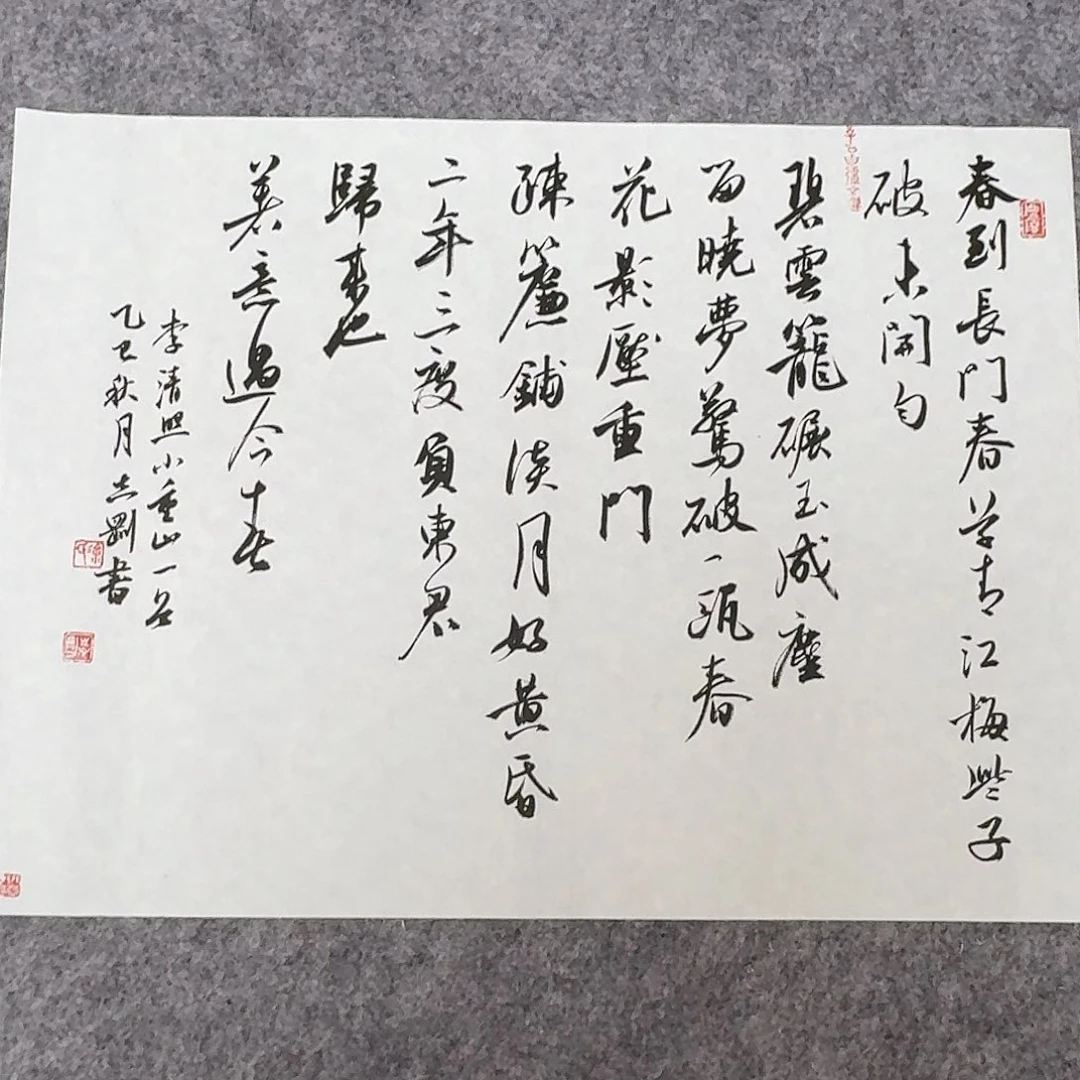 春到長門春草青江梅些子
破未開勻
碧雲籠碾玉成塵
留曉夢驚破一甌春
花影壓重門
疎簾鋪淡月好黃昏
二年三度負東君
歸來也
著意過今春
李清照小重山一首
乙巳秋月志剛書